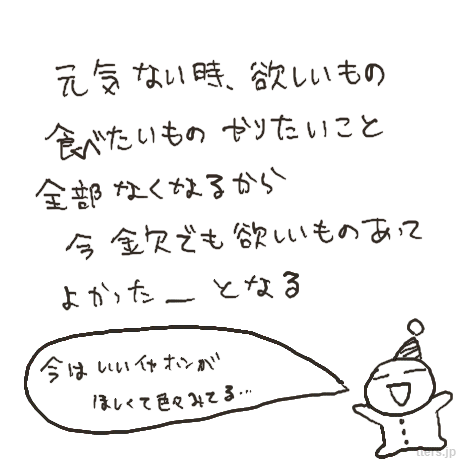 元気ない時、欲しいもの
食べたいもの やりたいこと
全部なくなるから
今 金欠でも欲しいものあって
よかった〜 となる
今はいいイヤホンが
ほしくて色々みてる…
tters.jp